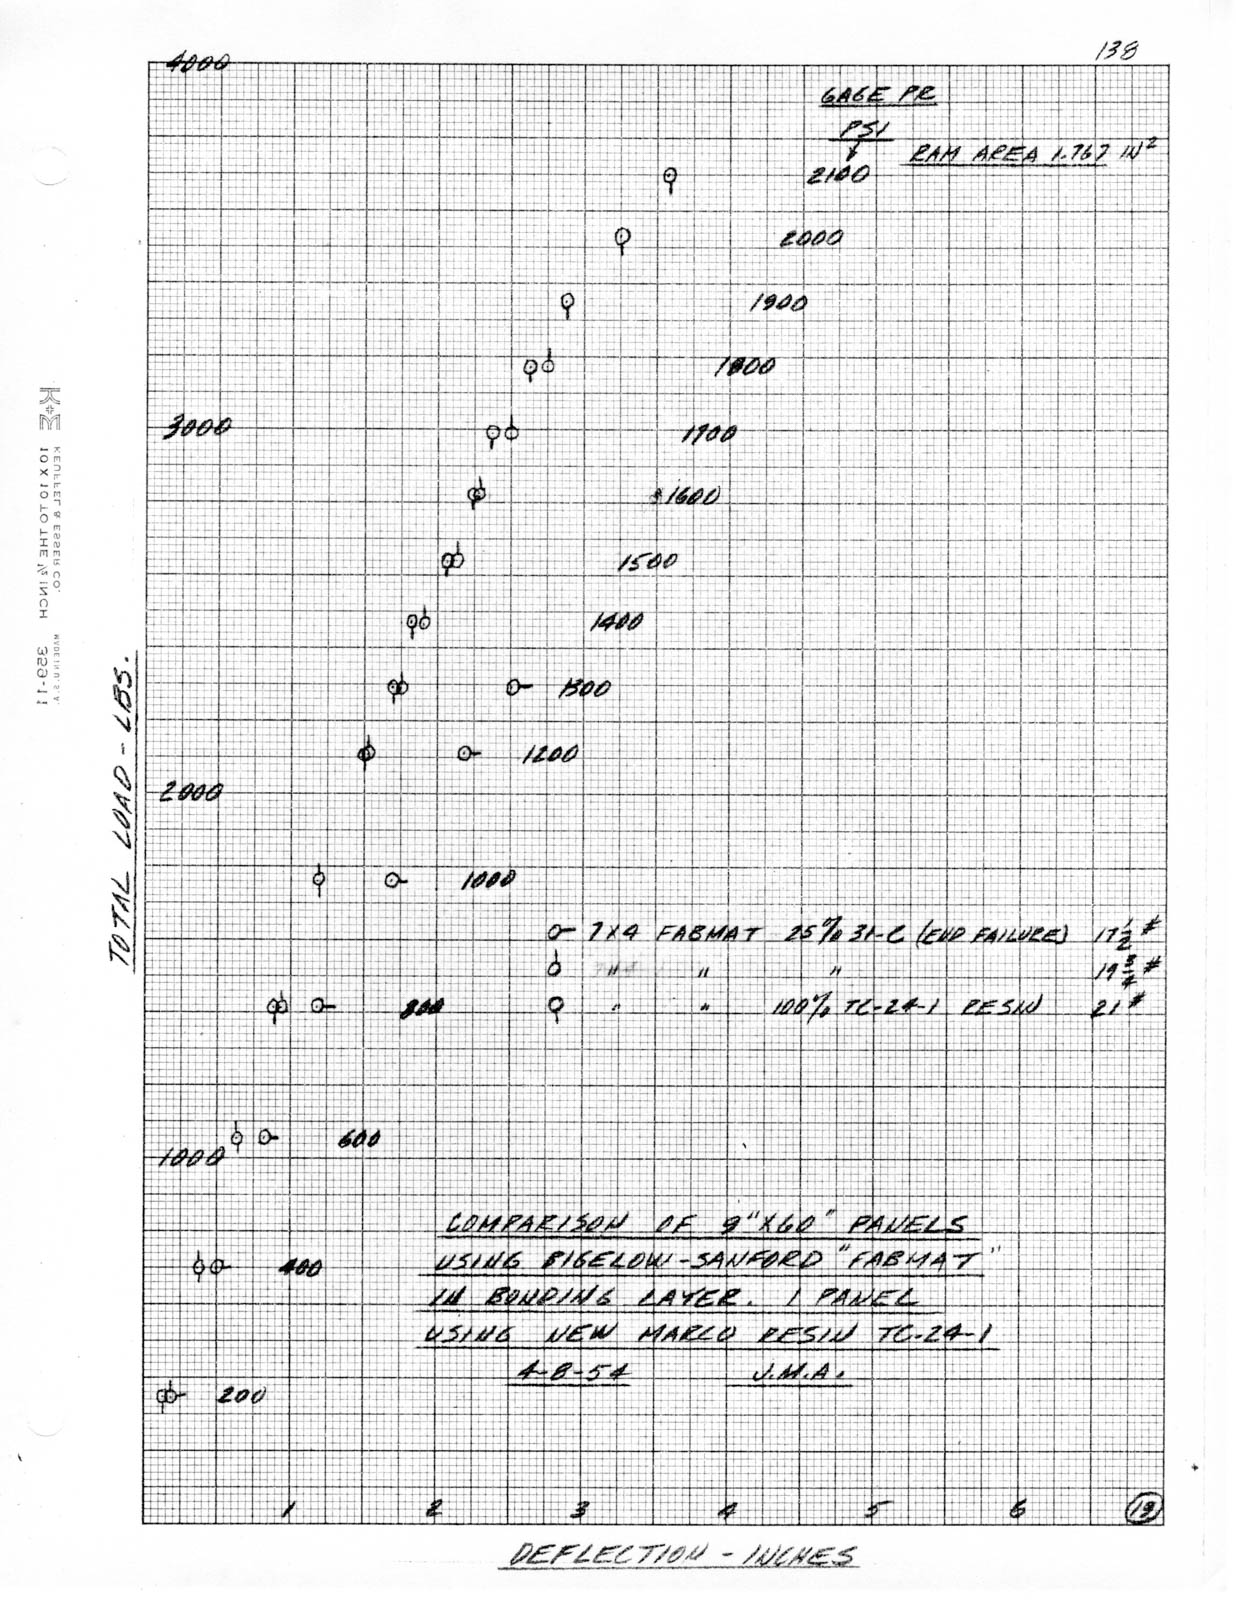 138
4000
GAGE PR
PSI
RAM AREA 1.767 IN²
2100
2000
1900
1800
3000
1700
1600
1500
1400
1300
1200
2000
1000
7X4 FABMAT 25% 31-C (END FAILURE) 17 1/2 #
" " " 19 3/4 #
800
" " 100% TC-24-1 RESIN 21 #
600
1000
COMPARISON OF 9"X60" PANELS
400
USING BIGELOW-SANFORD "FABMAT"
IN BONDING LAYER. 1 PANEL
USING NEW MARCO RESIN TC-24-1
4-8-54 J.M.A.
200
1 2 3 4 5 6
DEFLECTION - INCHES
TOTAL LOAD - LBS.
K+E
10 X 10 TO THE ½ INCH 359-11
KEUFFEL & ESSER CO.
MADE IN U.S.A.